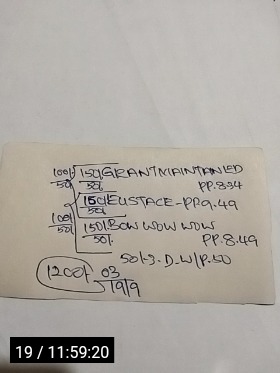 100/- 150/- GRANTMAINTAINLED
50/- 50/- PP.8.34
150/- EUSTACE - PP.9.49
50/-
100/- 150/- BOW WOW WOW
50/- 50/- PP.8.49
50/-3.D.W/P.50
1200/- 03
19/9
19 / 11:59:20